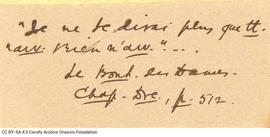 "Je ne te dirai plus que tt.
n'aur. Rien n'aur."...
Le Bonh. des Dames.
Chap. Dre, p. 512.
CC BY-SA 4.0 Cavafy Archive Onassis Foundation